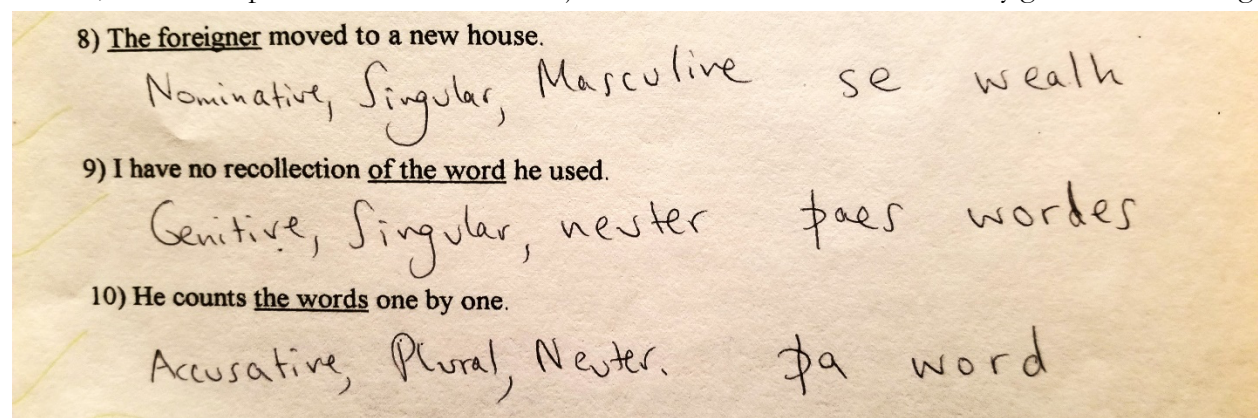 8) The foreigner moved to a new house.
Nominative, Singular, Masculine se wealh
9) I have no recollection of the word he used.
Genitive, Singular, neuter þaes wordes
10) He counts the words one by one.
Accusative, Plural, Neuter. þa word